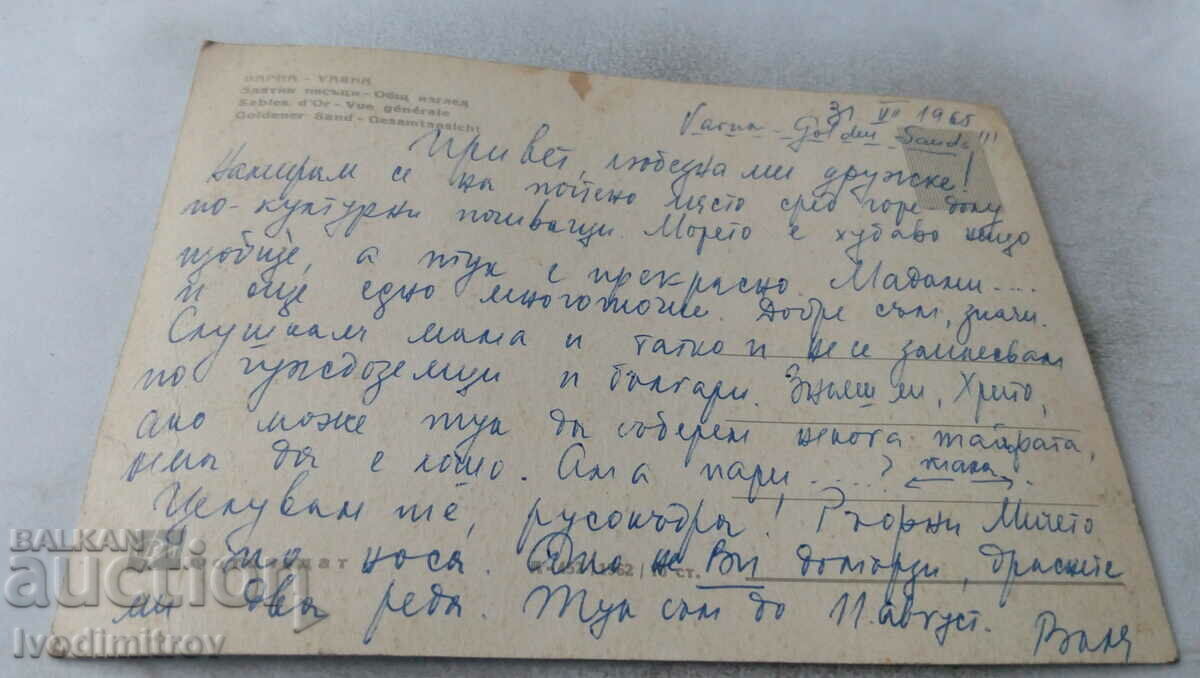 ВАРНА - VARNA
Златни пясъци - Общ изглед
Sables d'Or - Vue générale
Goldener Sand - Gesamtansicht
31 VII 1965
Varna - Golden Sands !!!
Привет, любезна ми дружке!
Намирам се на почтено място сред горе-долу
по-културни почиващи. Морето е хубаво нещо
изобщо, а тук е прекрасно. Мадами....
и още едно многоточие. Добре съм, значи.
Слушкам мама и татко и не се заплесвам
по чуждоземци и българи. Знаеш ли, Христо,
ако може тук да съберем некога тайфата,
нема да е лошо. Ама пари ..... жана.
Целувам те, русокъдра!
Мичето
по носа. Ако не Ви домързи, драснете
ми два реда. Тук съм до 11. август. Валя
1962 | 16 ст.
BALKAN
auction
Ivodimitrov